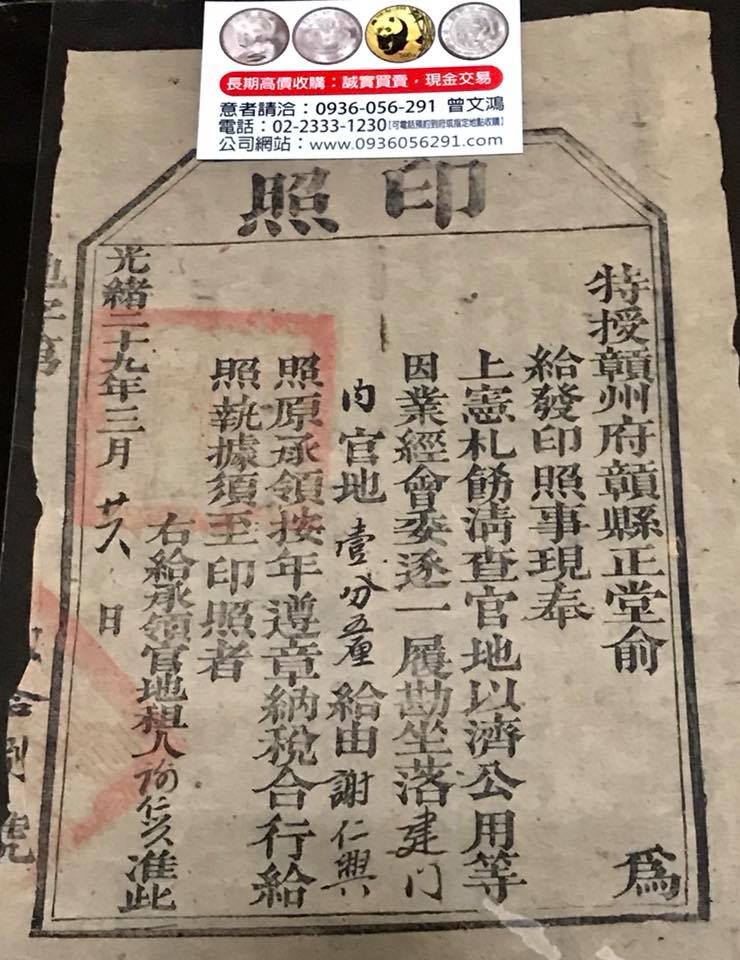 長期高價收購：誠實買賣，現金交易
意者請洽：0936-056-291 曾文鴻
電話：02-2333-1230【可電話預約到府或指定地點收購】
公司網站：www.0936056291.com
印照
特授贛州府贛縣正堂俞 為
給發印照事現奉
上憲札飭清查官地以濟公用等
因業經會委逐一履勘坐落建门
内官地壹分五厘給由謝仁興
照原承領按年遵章納稅合行給
照執據須至印照者
右給承領官地租人 准此
光緒二十九年三月廿八日